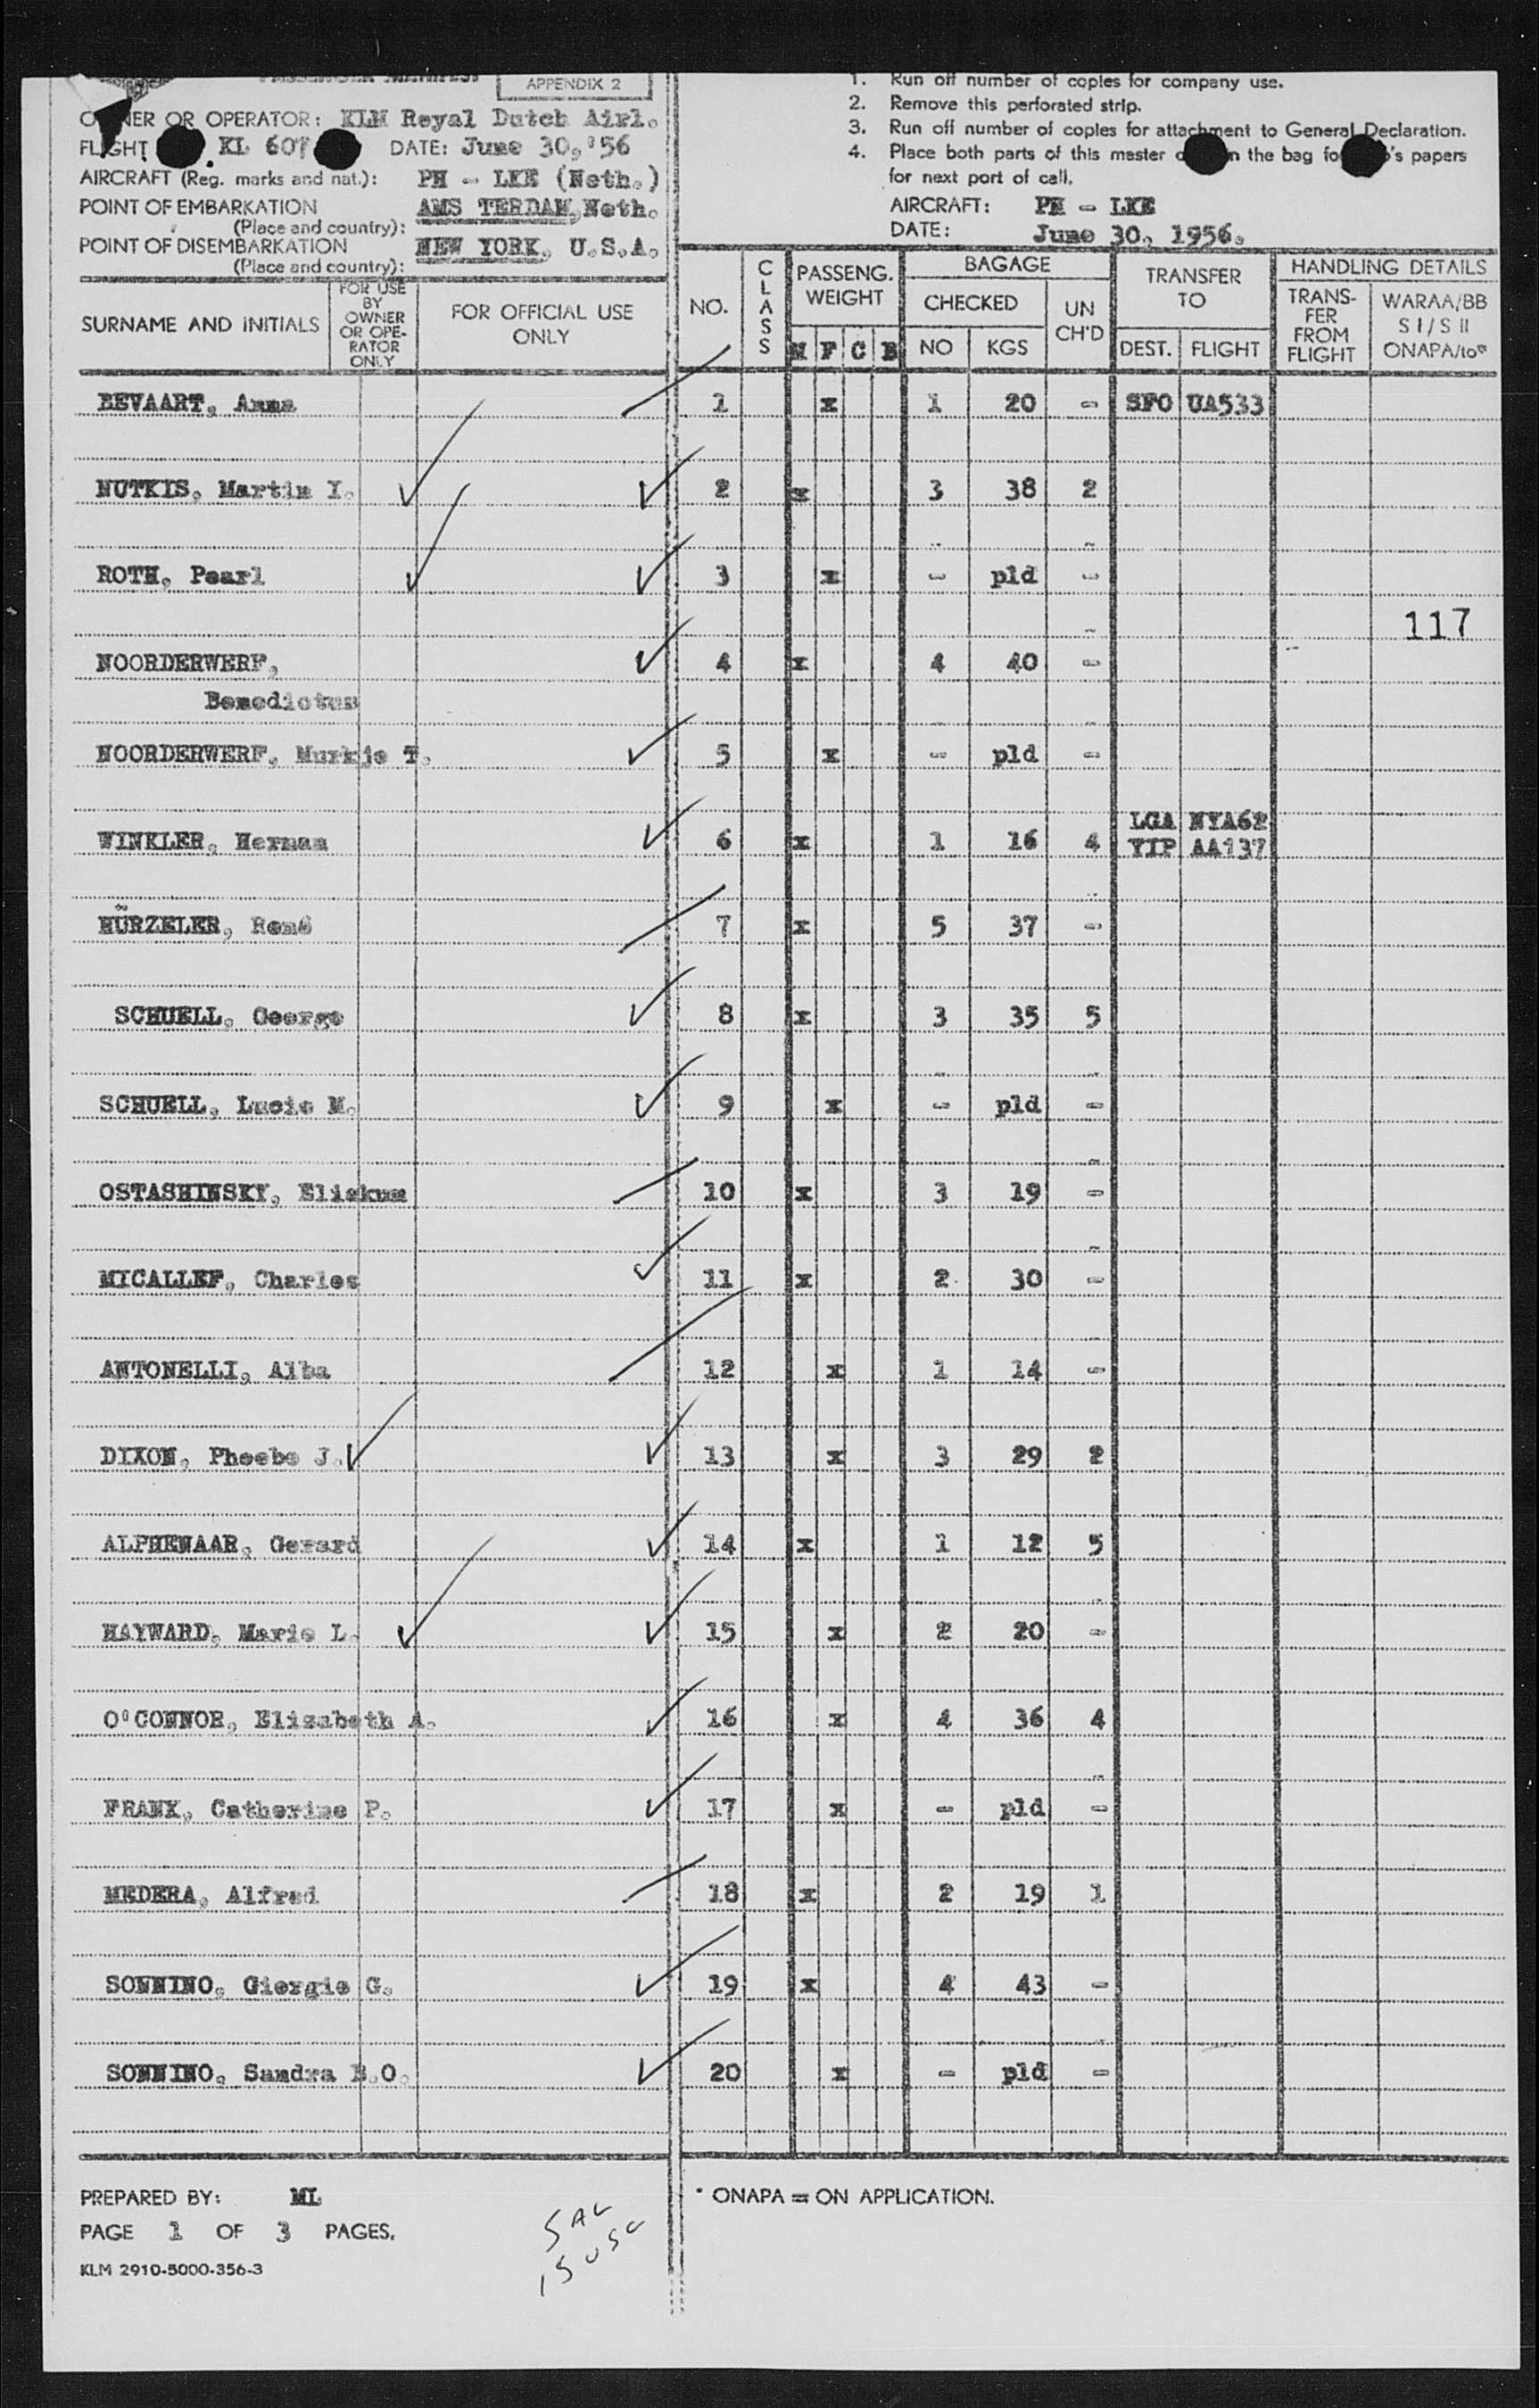 PASSENGER MANIFEST
APPENDIX 2
OWNER OR OPERATOR: KLM Royal Dutch Airl.
FLIGHT KL 607 DATE: June 30,'56
AIRCRAFT (Reg. marks and nat.): PH - LKE (Neth.)
POINT OF EMBARKATION (Place and country): AMS TERDAM, Neth.
POINT OF DISEMBARKATION (Place and country): NEW YORK, U.S.A.
1. Run off number of copies for company use.
2. Remove this perforated strip.
3. Run off number of copies for attachment to General Declaration.
4. Place both parts of this master in the bag 's papers
for next port of call.
AIRCRAFT: PH - LKE
DATE: June 30, 1956.
SURNAME AND INITIALS
FOR USE BY OWNER OR OPE- RATOR ONLY
FOR OFFICIAL USE ONLY
NO. CLASS PASSENG. WEIGHT M F C B
BAGAGE CHECKED NO KGS UN CH'D
TRANSFER TO DEST. FLIGHT
HANDLING DETAILS TRANS- FER FROM FLIGHT WARAA/BB S I / S II ONAPA/to*
BEVAART, Anna 1 x 1 20 - SFO UA533
NUTKIS, Martin I. 2 x 3 38 2
ROTH, Pearl 3 x - pld -
117
NOORDERWERF, 4 x 4 40 -
Benedictus
NOORDERWERF, Murkje T. 5 x - pld -
LGA NYA62
WINKLER, Herman 6 x 1 16 4 YIP AA137
HÜRZELER, René 7 x 5 37 -
SCHUELL, George 8 x 3 35 5
SCHUELL, Lucie M. 9 x - pld -
OSTASHINSKY, Eliakum 10 x 3 19 -
MICALLEF, Charles 11 x 2 30 -
ANTONELLI, Alba 12 x 1 14 -
DIXON, Phoebe J. 13 x 3 29 2
ALPHENAAR, Gerard 14 x 1 12 5
HAYWARD, Marie L. 15 x 2 20 -
O'CONNOR, Elizabeth A. 16 x 4 36 4
FRANK, Catherine P. 17 x - pld -
MEDERA, Alfred 18 x 2 19 1
SONNINO, Giorgio G. 19 x 4 43 -
SONNINO, Sandra B.O. 20 x - pld -
PREPARED BY: ML
* ONAPA = ON APPLICATION.
PAGE 1 OF 3 PAGES.
KLM 2910-5000-356-3
5 AL
15 USC